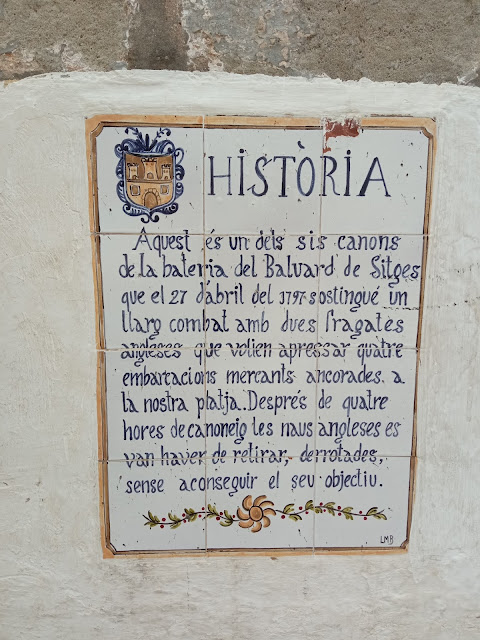 HISTÒRIA
Aquest és un dels sis canons
de la bateria del Baluard de Sitges
que el 27 d'abril del 1797 sostingué un
llarg combat amb dues fragates
angleses que volien apressar quatre
embarcacions mercants ancorades. a
la nostra platja. Després de quatre
hores de canoneig les naus angleses es
van haver de retirar, derrotades,
sense aconseguir el seu objectiu.
LMB